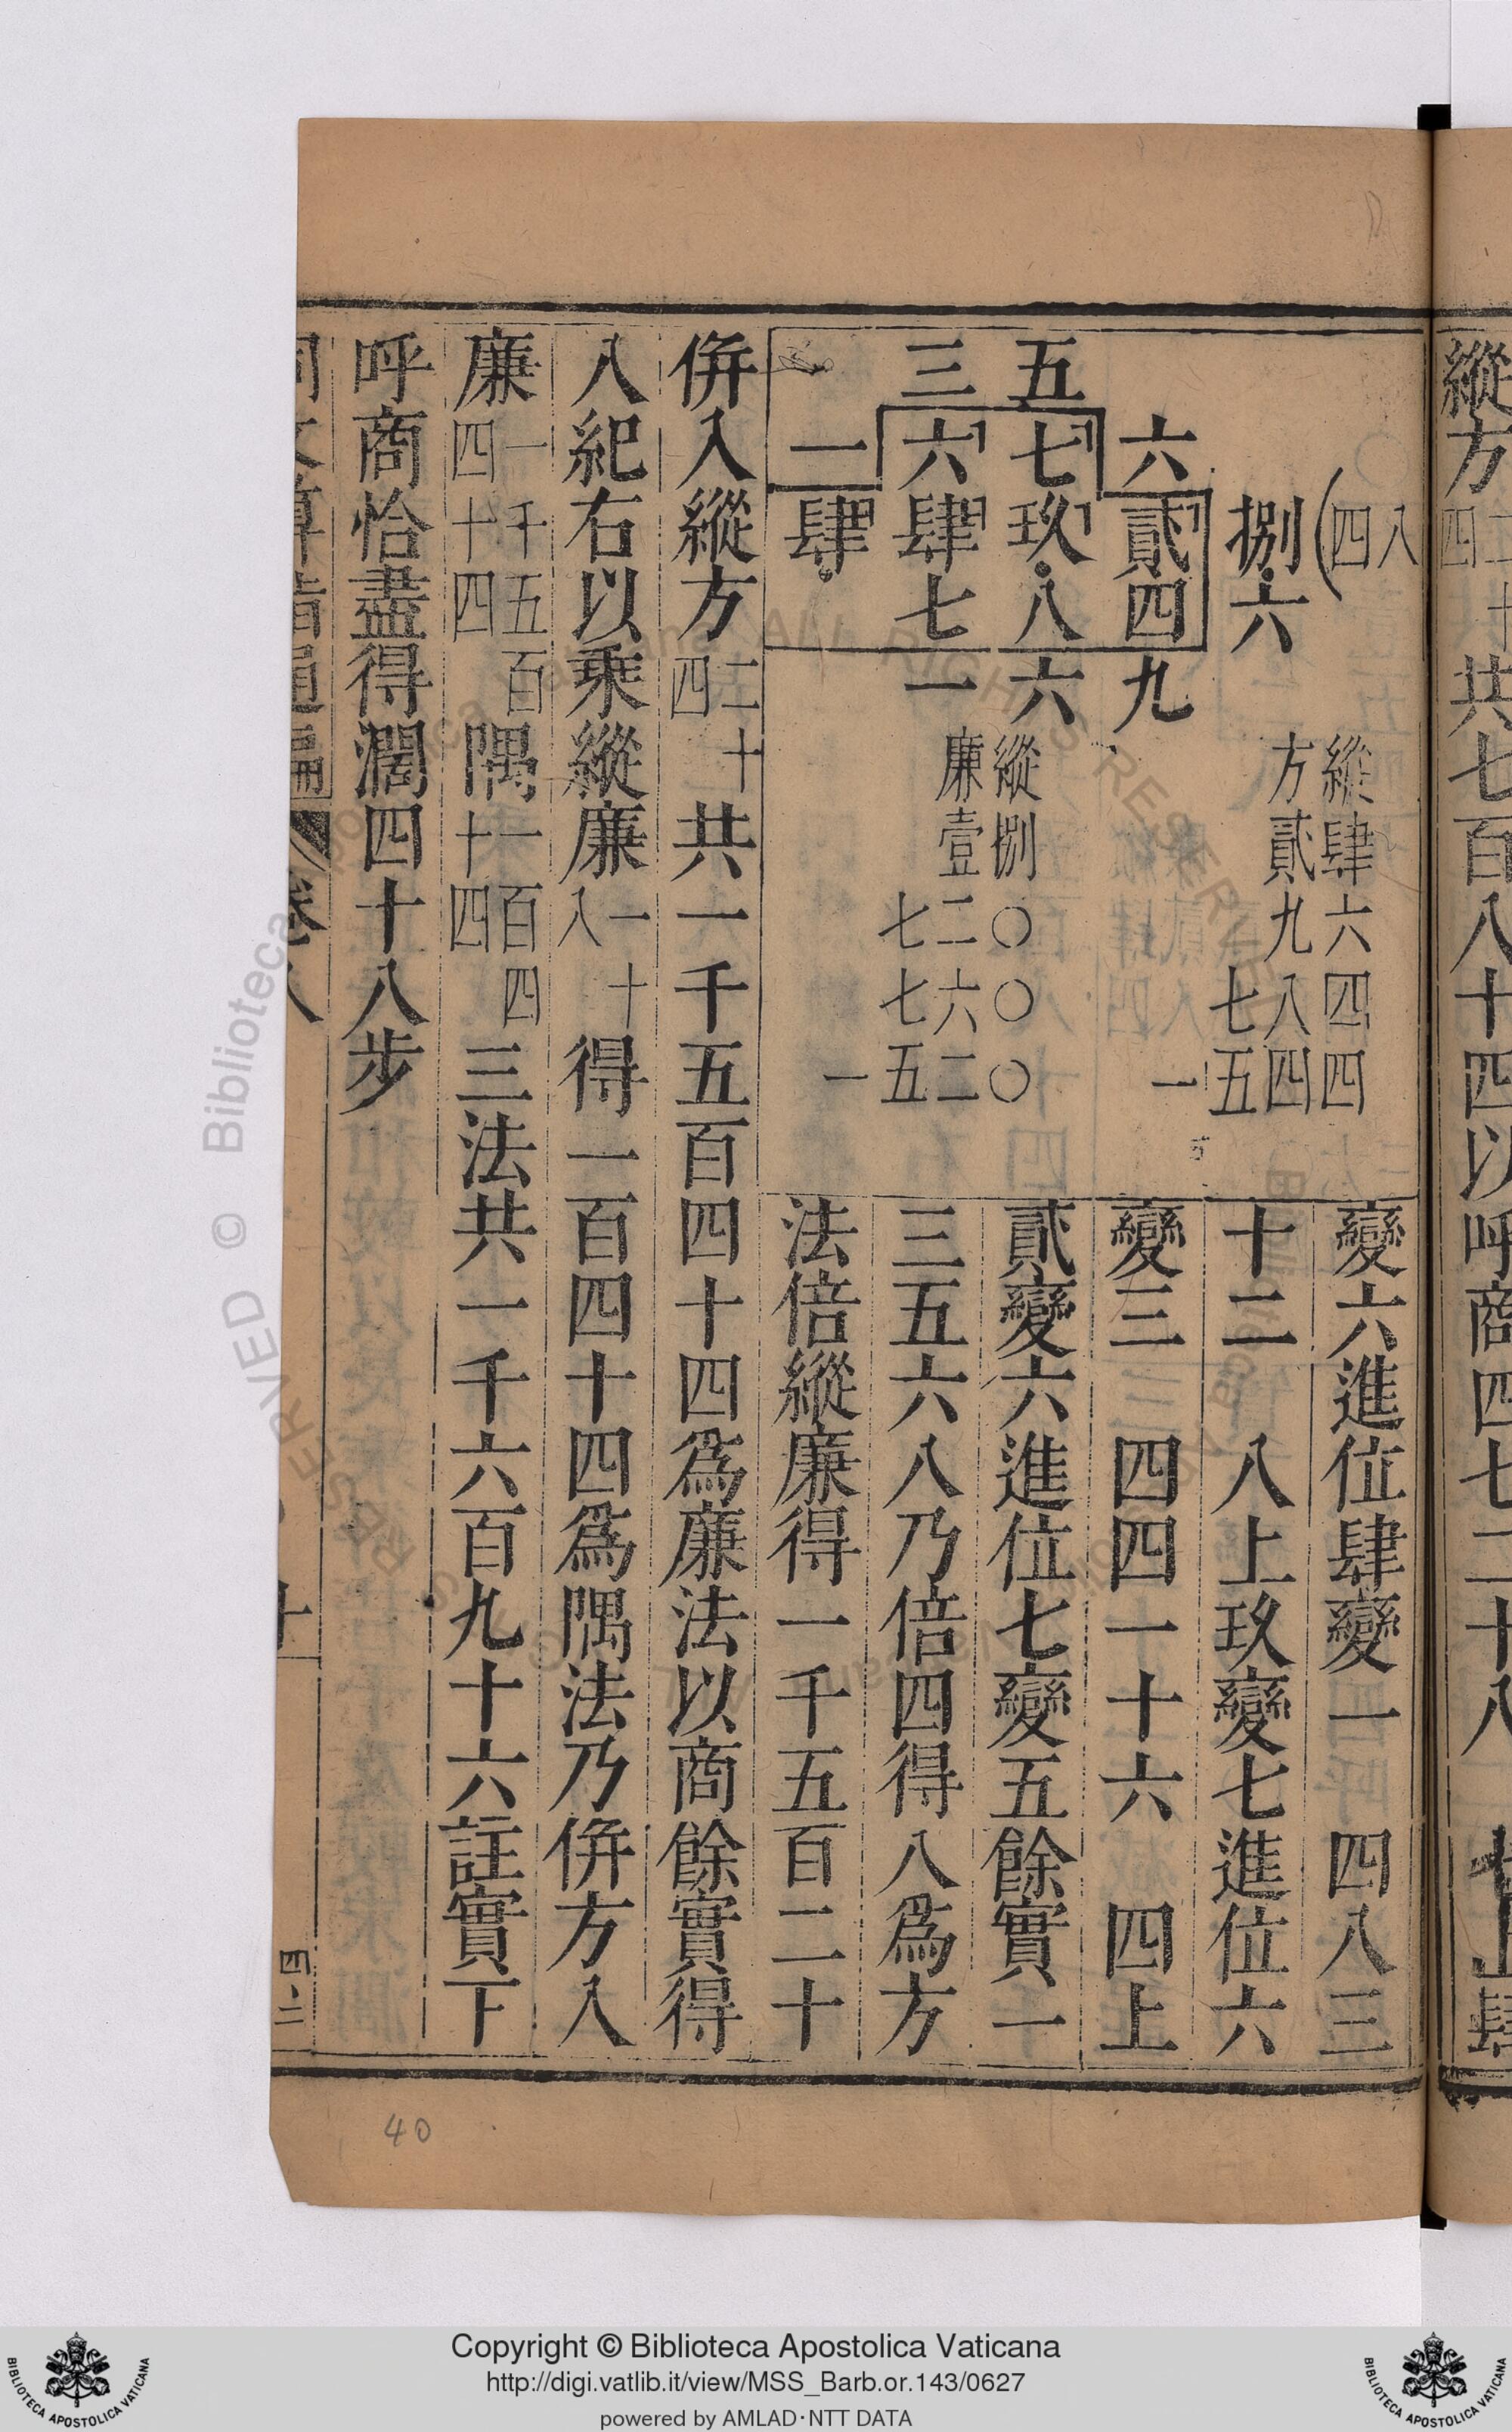 縱方
共七百八十四以呼商四七二十八
變六進位肆變一 四八三
十二 八上玖變七進位六
變三 四四一十六 四上
貳變六進位七變五餘實一
三五六八乃倍四得八爲方
法倍縱廉得一千五百二十
八四
捌六
六貳四九
五七玖八六
三六肆七一
一肆
縱肆六四四
方貳九八四
七五
一
縱捌〇〇〇
廉壹二六二
七七五
一
併入縱方二十四共一千五百四十四爲廉法以商餘實得
八紀右以乘縱廉一十八得一百四十四爲隅法乃併方入
廉一千五百四十四隅一百四十四三法共一千六百九十六註實下
呼商恰盡得濶四十八步
四二
40
Copyright © Biblioteca Apostolica Vaticana
http://digi.vatlib.it/view/MSS_Barb.or.143/0627
powered by AMLAD·NTT DATA
BIBLIOTECA APOSTOLICA VATICANA
BIBLIOTECA APOSTOLICA VATICANA